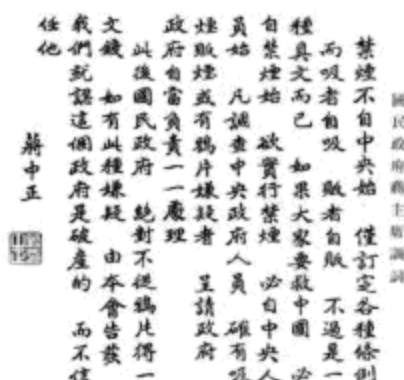 國民政府蔣主席訓詞
禁煙不自中央始　僅訂定各種條則
而吸者自吸　販者自販　不過是一
種具文而已　如果大家要救中國　必
自禁煙始　欲實行禁煙　必自中央人
員始　凡調查中央政府人員　確有吸
煙販煙或有鴉片嫌疑者　呈請政府
政府自當負責一一處理
此後國民政府　絕對不從鴉片得一
文錢　如有此種嫌疑　由本會告發
我們就認這個政府是破產的　而不信
任他
蔣中正